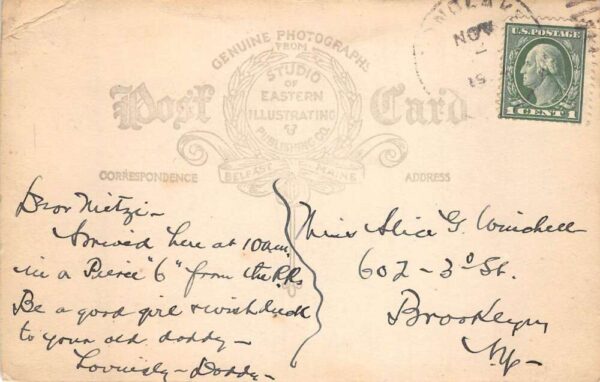 NOV
U.S. POSTAGE
1 CENT 1
GENUINE PHOTOGRAPHS
FROM
STUDIO
OF
EASTERN
ILLUSTRATING
&
PUBLISHING CO.
BELFAST MAINE
Post Card
CORRESPONDENCE ADDRESS
Dear Mitzi -
Arrived here at 10am.
in a Pierce "6" from the R.R.
Be a good girl & wish luck
to your old daddy -
Lovingly - Daddy -
Miss Alice G. Winchell
602 - 3d St.
Brooklyn
Ny -